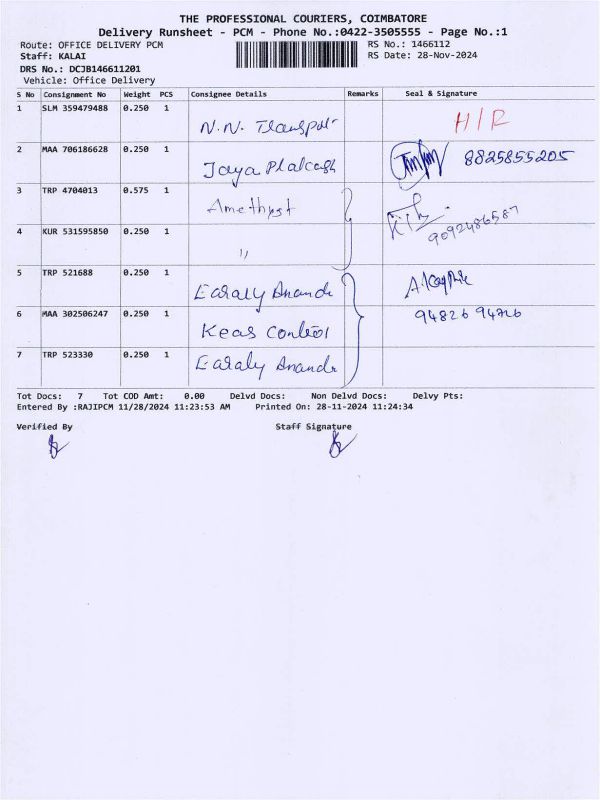 THE PROFESSIONAL COURIERS, COIMBATORE
Delivery Runsheet - PCM - Phone No.:0422-3505555 - Page No.:1
Route: OFFICE DELIVERY PCM
RS No.: 1466112
Staff: KALAI
RS Date: 28-Nov-2024
DRS No.: DCJB146611201
Vehicle: Office Delivery
S No Consignment No Weight PCS Consignee Details Remarks Seal & Signature
1 SLM 359479488 0.250 1 N.N. Transport H/R
2 MAA 706186628 0.250 1 Jaya Plakash 8825855205
3 TRP 4704013 0.575 1 Amethyst
4 KUR 531595850 0.250 1 " 9092486587
5 TRP 521688 0.250 1
6 MAA 302506247 0.250 1 Keas Control 94826 94726
7 TRP 523330 0.250 1
Tot Docs: 7 Tot COD Amt: 0.00 Delvd Docs: Non Delvd Docs: Delvy Pts:
Entered By :RAJIPCM 11/28/2024 11:23:53 AM Printed On: 28-11-2024 11:24:34
Verified By Staff Signature